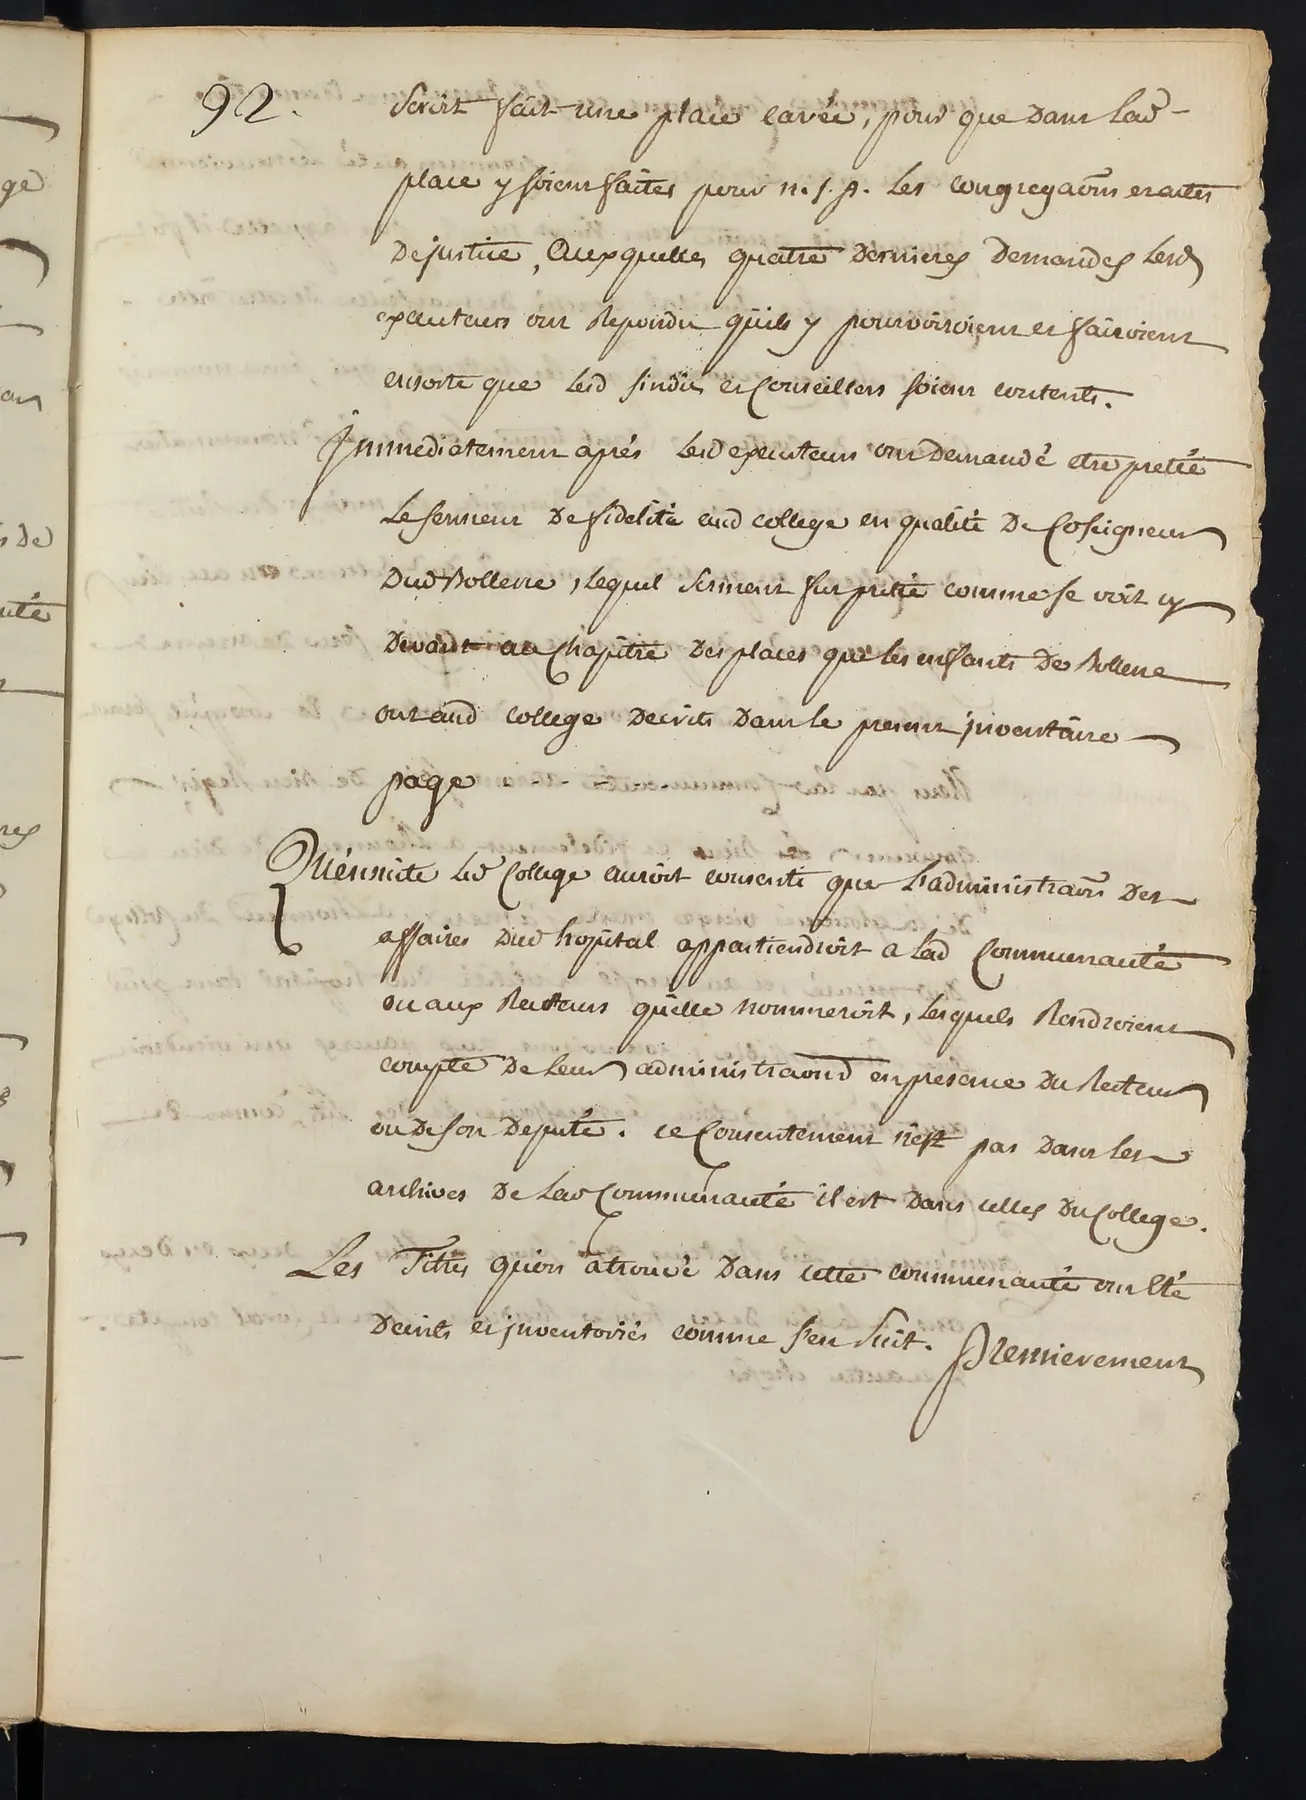 92.
Seroit fait une place carée, pour que dans lad
place y soient faites pour n. s. p. les congregaons et actes
de justice, Auxquelles quatre dernieres demandes lesd
executeurs ont repondu quils y pourvoiroient et fairoient
ensorte que lesd sindics et Conseillers soient contents.
Immediatement aprés lesd executeurs ont demandé etre preté
le serment de fidelité aud college en qualité de Coseigneur
dud Bollene, lequel serment fut preté comme se voit cy
devant au Chapitre des places que les enfants de Bollene
ont aud college decrits dans le present inventaire
page - - -
Quénsuite led College auroit consenti que l'administraon des
affaires dud hopital appartiendroit a lad Communauté
ou aux Recteurs quelle nommeroit, lesquels Rendroient
compte de leur administraond en presence du Recteur
ou de son deputé. ce Consentement n'est pas dans les
archives de lad Communauté il est dans celles du College.
Les Titres qu'on a trouvé dans cette communauté ont eté
decrits et inventoriés comme s'en suit. Premierement